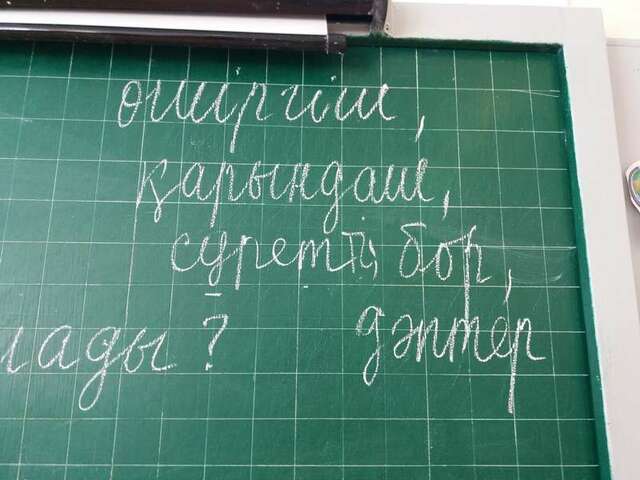 өшіргіш,
қарындаш,
сурет бор,
лады? дәптер